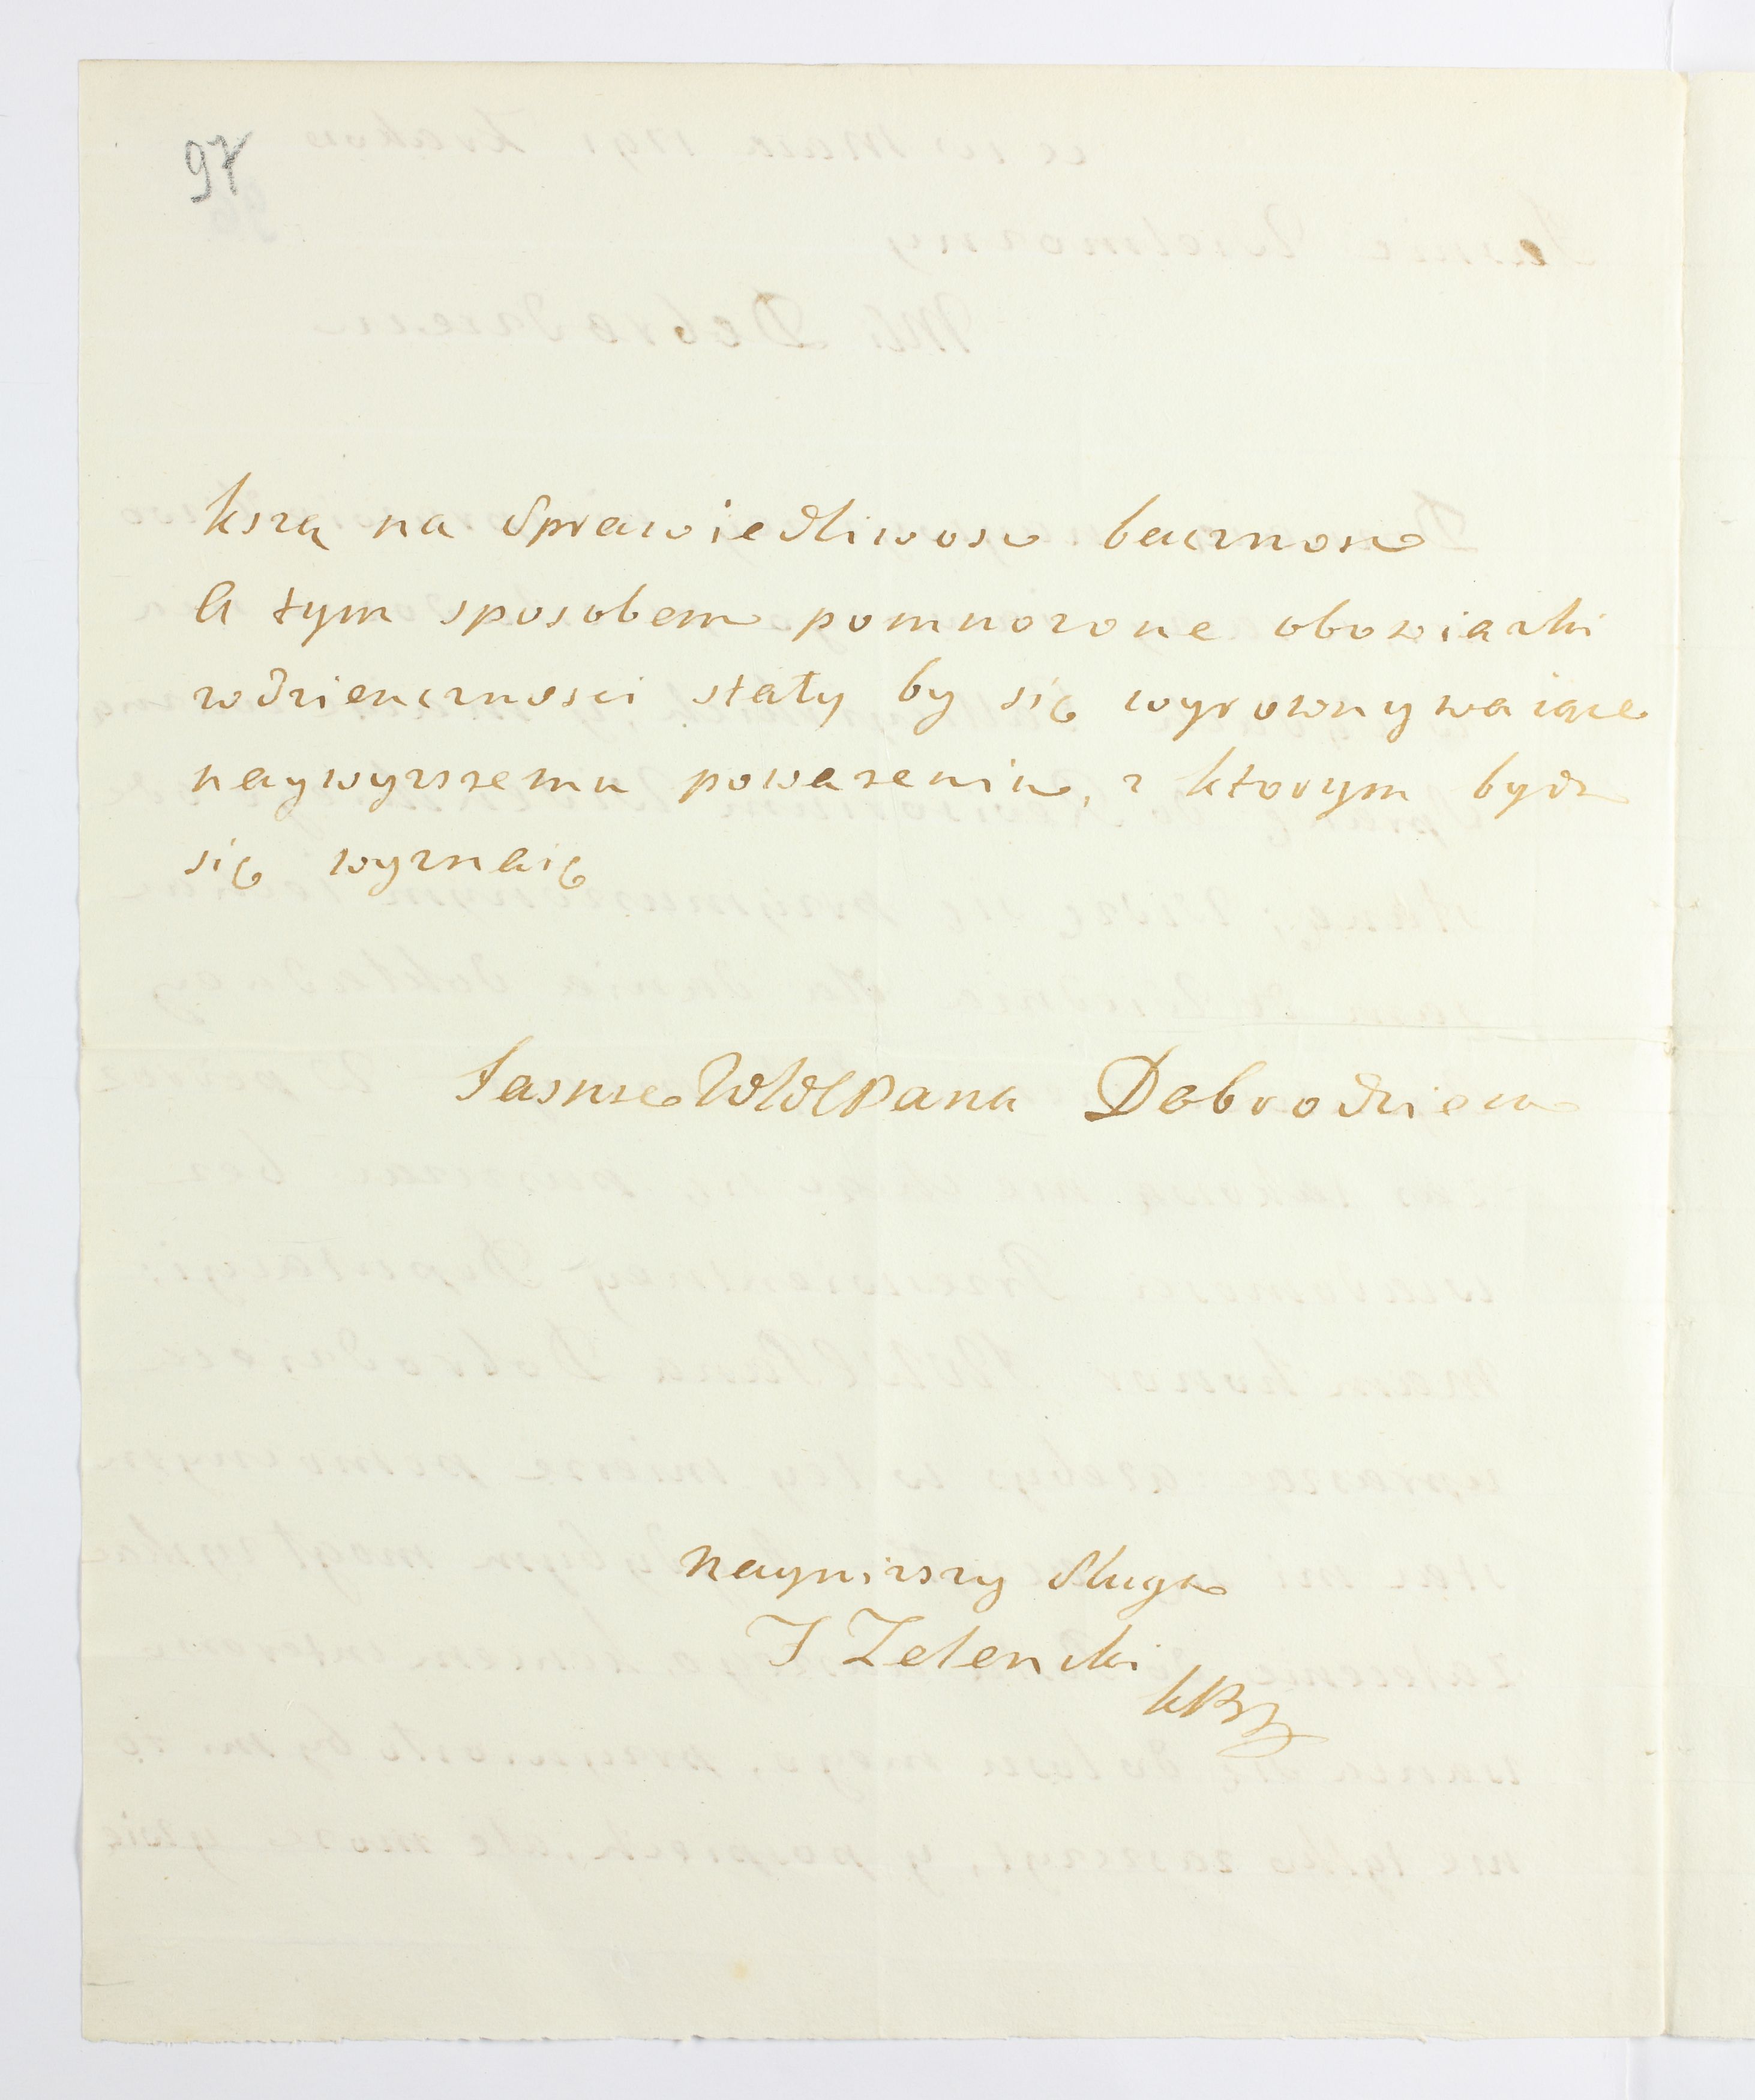 97
kszą na Sprawiedliwosc bacznosc
A tym sposobem pomnozone obowiazki
wdziencznosci stały by się wyrownywaiące
naywyzszemu powazeniu, z ktorym bydz
się wyznaię
Jasnie WW Pana Dobrodzieia
Nayniszszy Sługa
J Zelenski